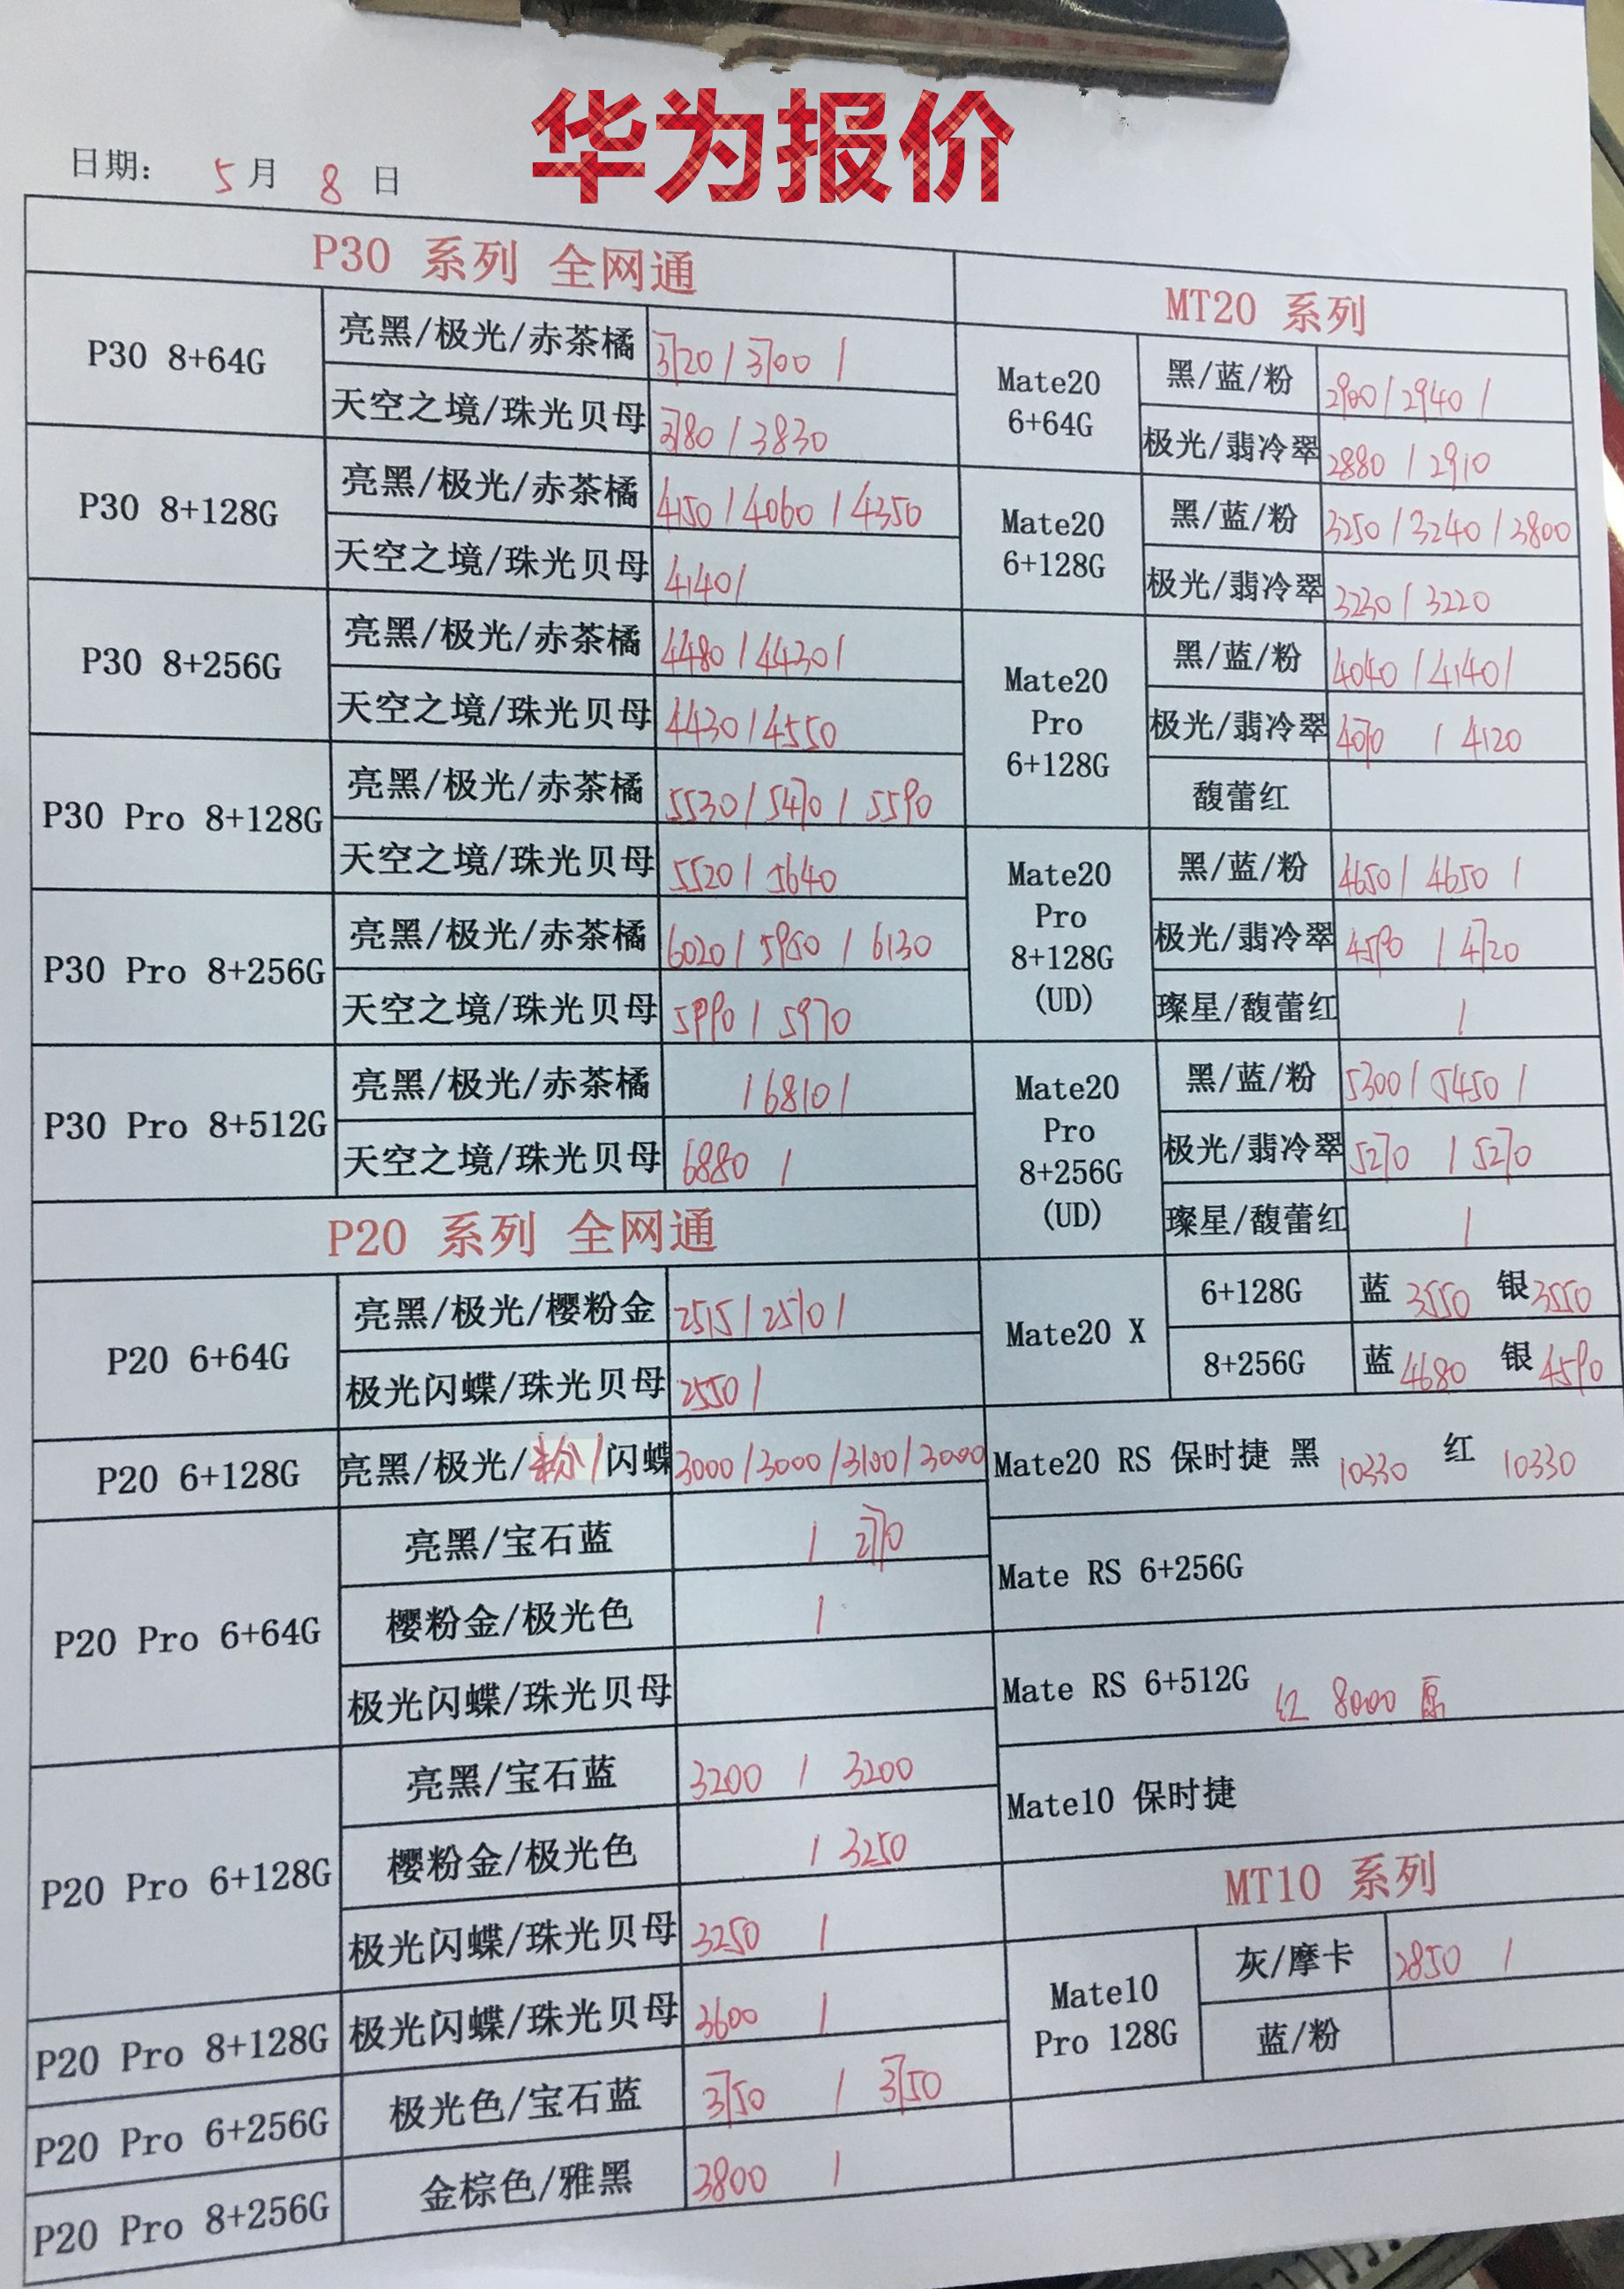 华为报价
日期： 5 月 8 日
P30 系列 全网通
P30 8+64G
亮黑/极光/赤茶橘 3720 / 3700 /
天空之境/珠光贝母 3780 / 3830
P30 8+128G
亮黑/极光/赤茶橘 4150 / 4060 / 4350
天空之境/珠光贝母 4140 /
P30 8+256G
亮黑/极光/赤茶橘 4480 / 4430 /
天空之境/珠光贝母 4430 / 4550
P30 Pro 8+128G
亮黑/极光/赤茶橘 5530 / 5470 / 5590
天空之境/珠光贝母 5520 / 5640
P30 Pro 8+256G
亮黑/极光/赤茶橘 6020 / / 6130
天空之境/珠光贝母 5990 / 5970
P30 Pro 8+512G
亮黑/极光/赤茶橘 / 6810 /
天空之境/珠光贝母 6880 /
P20 系列 全网通
P20 6+64G
亮黑/极光/樱粉金 2515 / 2570 /
极光闪蝶/珠光贝母 2550 /
P20 6+128G
亮黑/极光/粉/闪蝶 3000 / 3000 / 3100 / 3000
P20 Pro 6+64G
亮黑/宝石蓝 / 2770
樱粉金/极光色 /
极光闪蝶/珠光贝母
P20 Pro 6+128G
亮黑/宝石蓝 3200 / 3200
樱粉金/极光色 / 3250
极光闪蝶/珠光贝母 3250 /
P20 Pro 8+128G
极光闪蝶/珠光贝母 3600 /
P20 Pro 6+256G
极光色/宝石蓝 3750 / 3750
P20 Pro 8+256G
金棕色/雅黑 3800 /
MT20 系列
Mate20
6+64G
黑/蓝/粉 2900 / 2940 /
极光/翡冷翠 2880 / 2910
Mate20
6+128G
黑/蓝/粉 3250 / 3240 / 3800
极光/翡冷翠 3230 / 3220
Mate20
Pro
6+128G
黑/蓝/粉 4040 / 4140 /
极光/翡冷翠 4070 / 4120
馥蕾红
Mate20
Pro
8+128G
(UD)
黑/蓝/粉 4650 / 4650 /
极光/翡冷翠 4590 / 4720
璨星/馥蕾红 /
Mate20
Pro
8+256G
(UD)
黑/蓝/粉 5300 / 5450 /
极光/翡冷翠 5270 / 5270
璨星/馥蕾红 /
Mate20 X
6+128G 蓝 3550 银 3550
8+256G 蓝 4680 银 4590
Mate20 RS 保时捷 黑 10330 红 10330
Mate RS 6+256G
Mate RS 6+512G 红 8000 原
Mate10 保时捷
MT10 系列
Mate10
Pro 128G
灰/摩卡 2850 /
蓝/粉